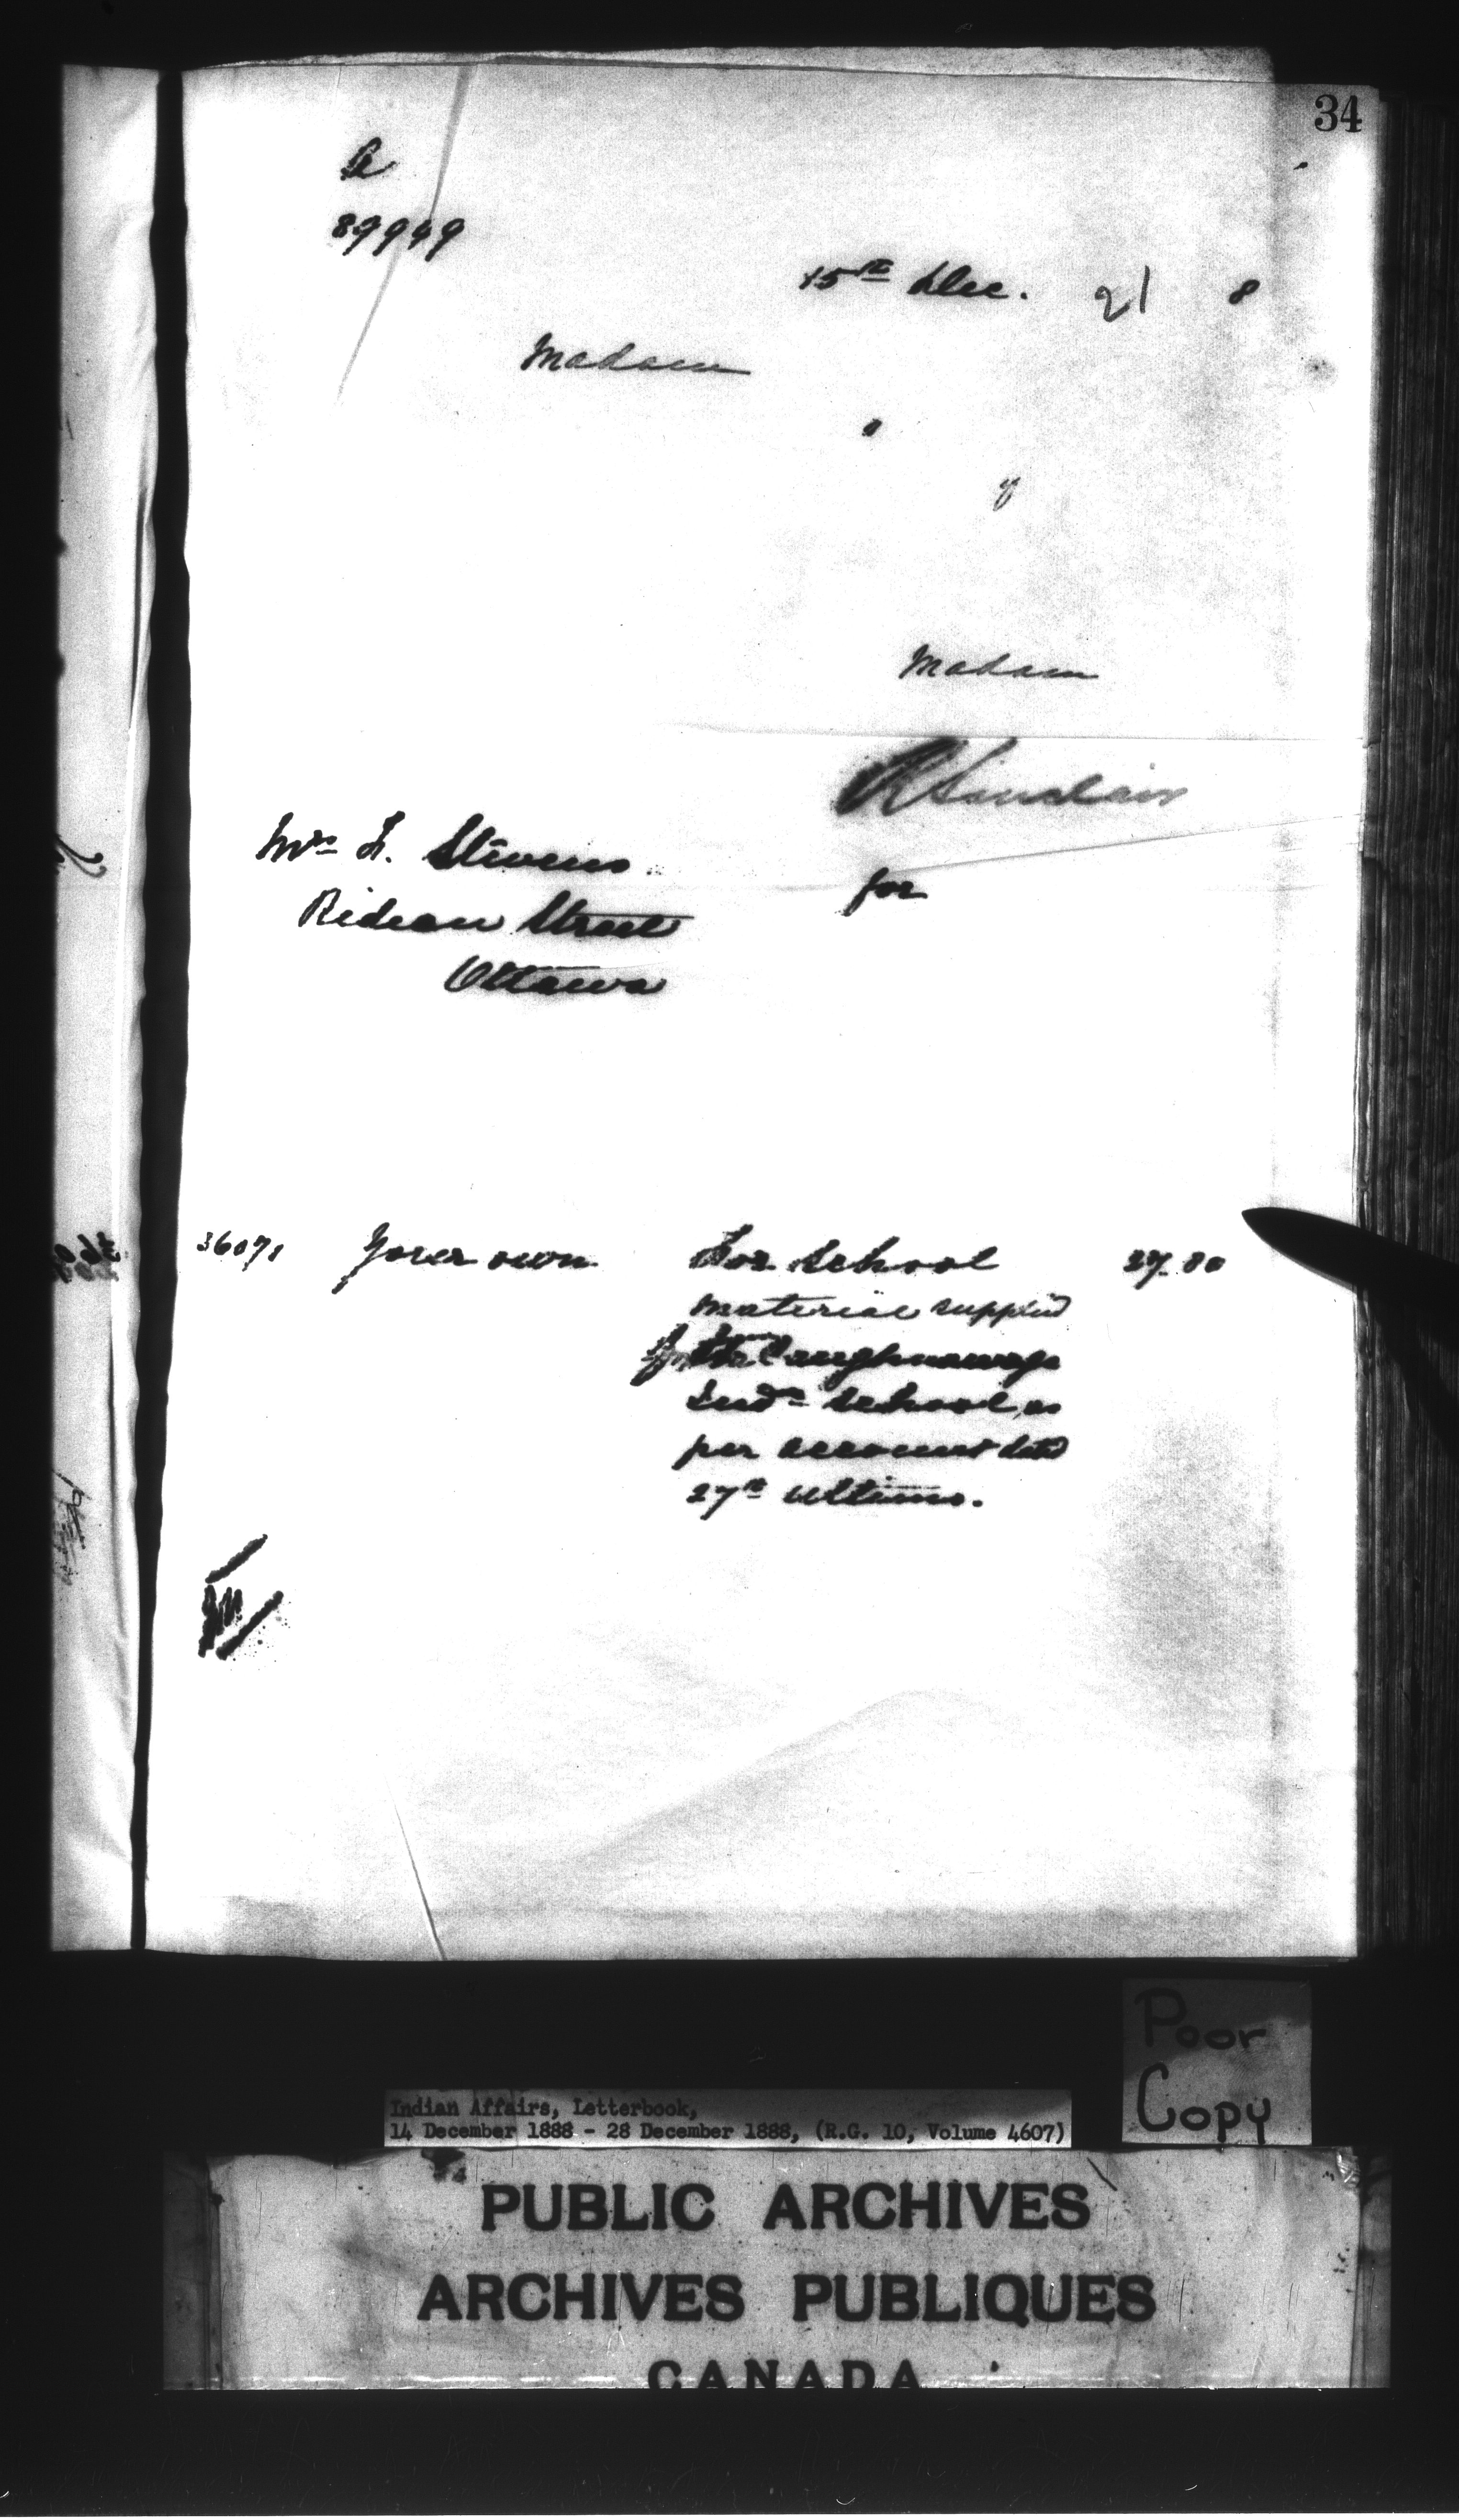 34
A
89949
15th Dec. 21 8
Madam
Madam
R Sinclair
Mrs F. Stevens
for
Rideau Street
Ottawa
36071 Your own For School 27.80
material supplied
for the Caughnawaga
Indn School, as
per account dated
27th Ultimo.
Poor
Copy
Indian Affairs, Letterbook,
14 December 1888 - 28 December 1888, (R.G. 10, Volume 4607)
PUBLIC ARCHIVES
ARCHIVES PUBLIQUES
CANADA